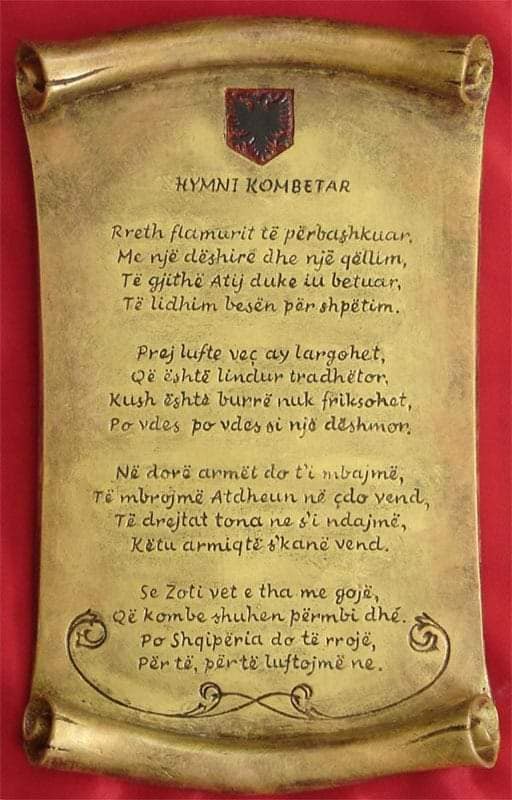 HYMNI KOMBETAR
Rreth flamurit të përbashkuar,
Me një dëshirë dhe një qëllim,
Të gjithë Atij duke iu betuar,
Të lidhim besën për shpëtim.
Prej lufte veç ay largohet,
Që është lindur tradhëtor,
Kush është burrë nuk friksohet,
Po vdes po vdes si një dëshmor.
Në dorë armët do t'i mbajmë,
Të mbrojmë Atdheun në çdo vend,
Të drejtat tona ne s'i ndajmë,
Këtu armiqtë s'kanë vend.
Se Zoti vet e tha me gojë,
Që kombe shuhen përmbi dhé.
Po Shqipëria do të rrojë,
Për të, përtë luftojmë ne.